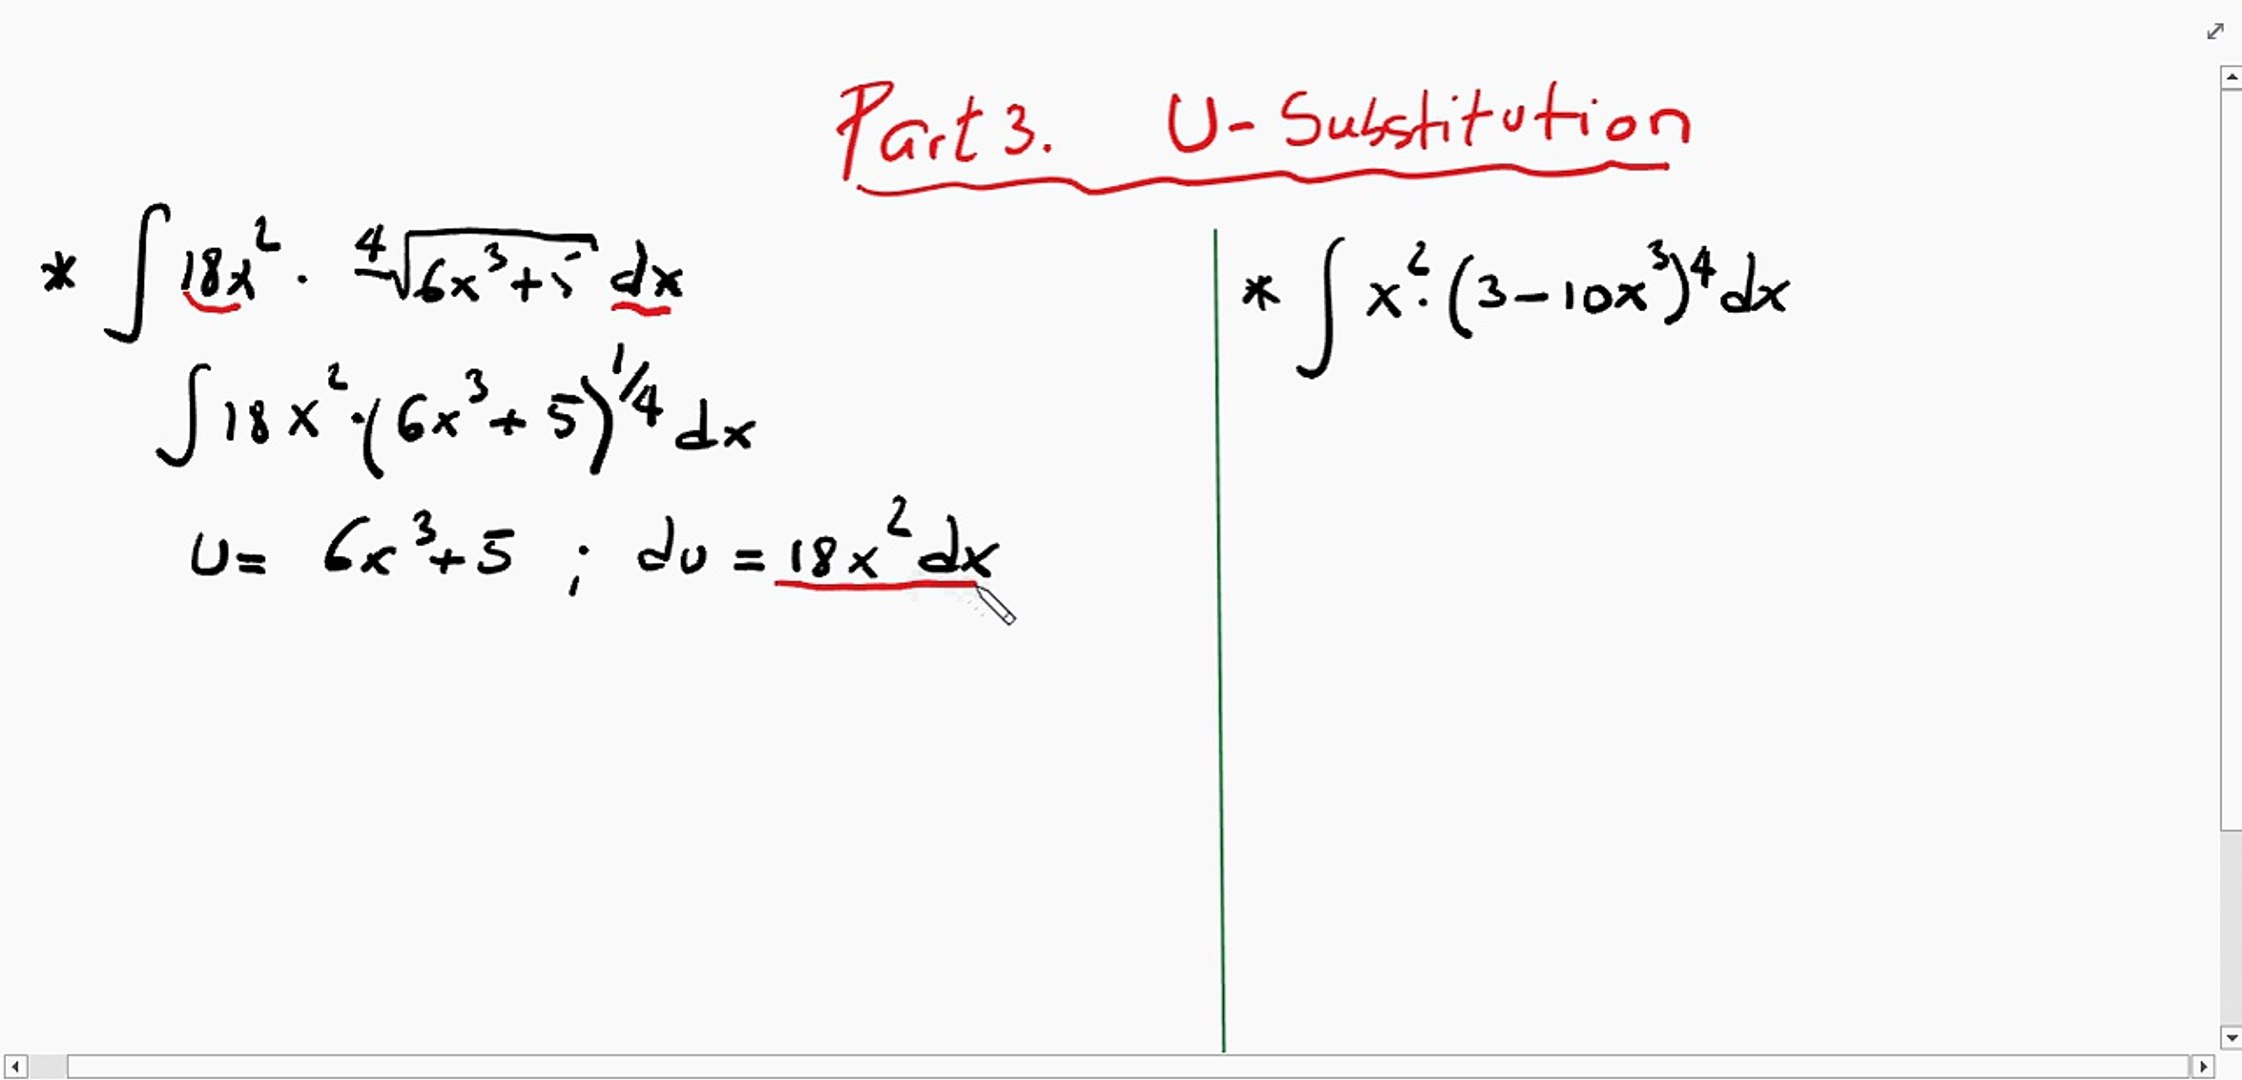 Part 3. U-Substitution
* ∫ 18x² · ∜(6x³+5) dx
∫ 18x² · (6x³+5)^1/4 dx
U= 6x³+5 ; du = 18x² dx
* ∫ x² · (3-10x³)⁴ dx